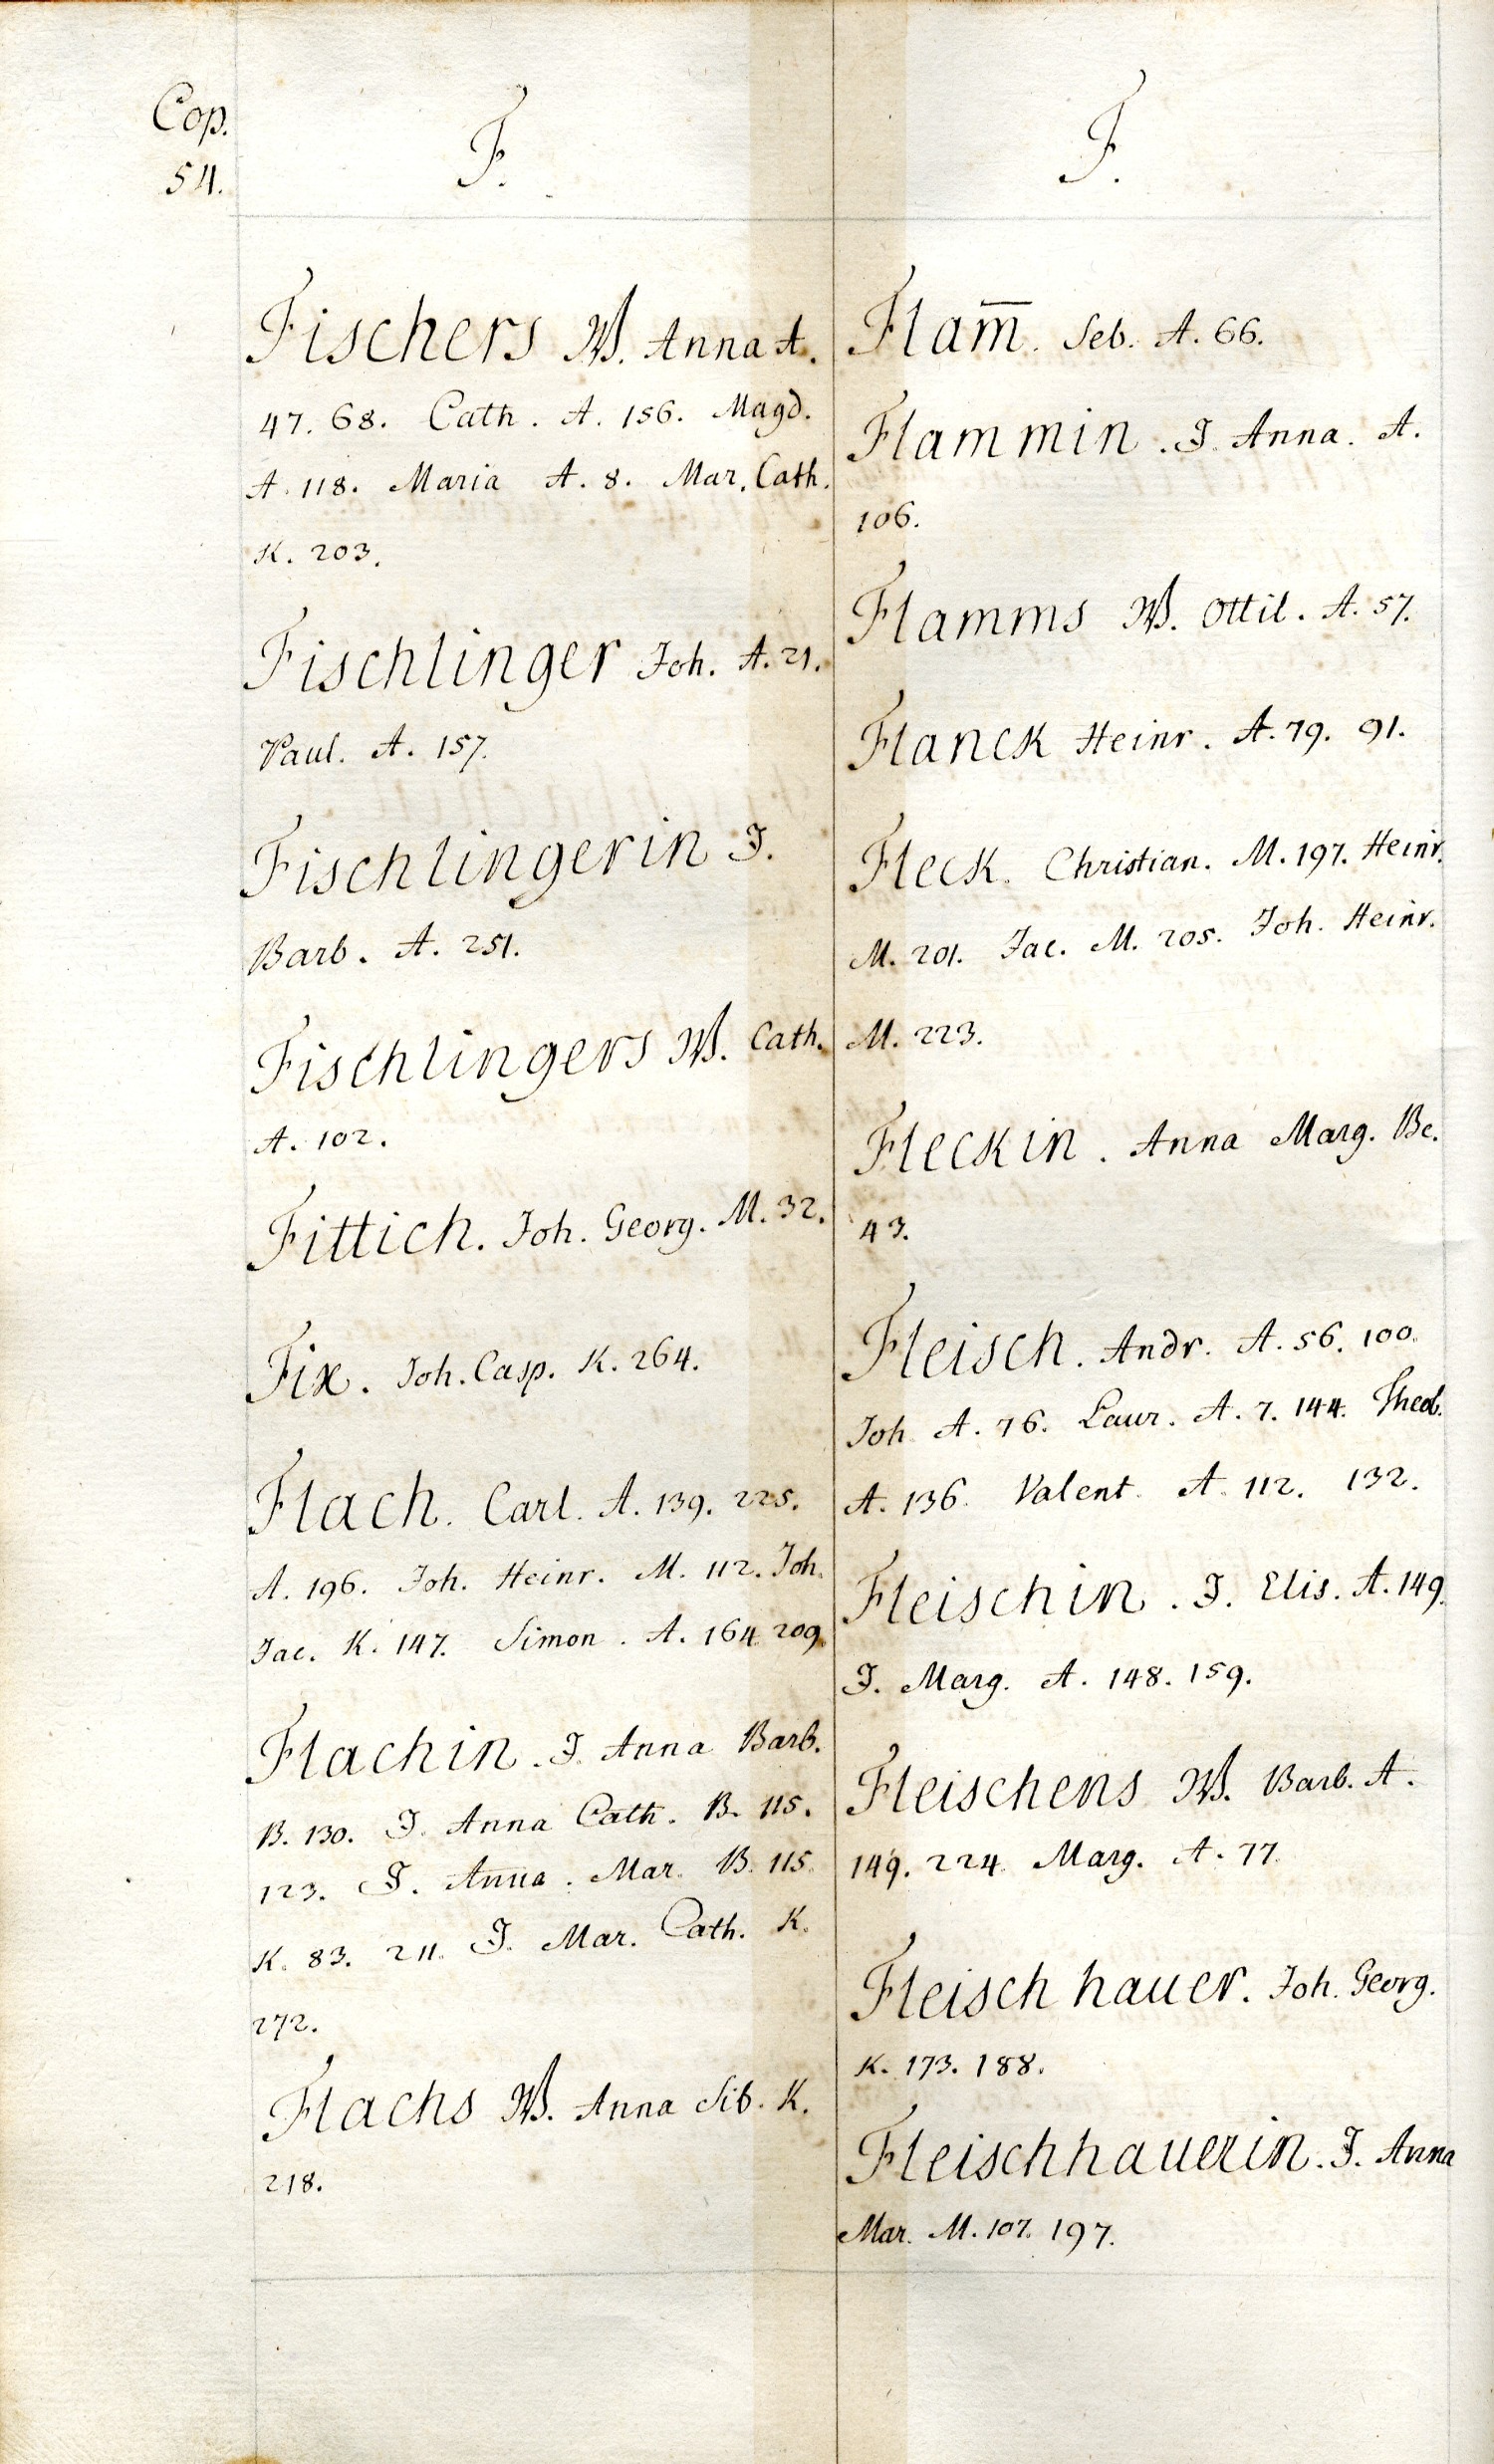 Cop.
54.
F.
Fischers W. Anna A.
47. 68. Cath. A. 156. Magd.
A. 118. Maria A. 8. Mar. Cath.
K. 203.
Fischlinger Joh. A. 21.
Paul. A. 157.
Fischlingerin J.
Barb. A. 251.
Fischlingers W. Cath.
A. 102.
Fittich. Joh. Georg. M. 32.
Fix. Joh. Casp. K. 264.
Flach. Carl. A. 139. 225.
A. 196. Joh. Heinr. M. 112. Joh.
Jac. K. 147. Simon. A. 164. 209.
Flachin. J. Anna Barb.
B. 130. J. Anna Cath. B. 115.
123. J. Anna. Mar. B. 115.
K. 83. 211. J. Mar. Cath. K.
272.
Flachs W. Anna Sib. K.
218.
F.
Flam̅. Seb. A. 66.
Flammin. J. Anna. A.
106.
Flamms W. Ottil. A. 57.
Flanck Heinr. A. 79. 91.
Fleck. Christian. M. 197. Heinr.
M. 201. Jac. M. 205. Joh. Heinr.
M. 223.
Fleckin. Anna Marg. Be.
43.
Fleisch. Andr. A. 56. 100.
Joh A. 76. Laur. A. 7. 144. Theob.
A. 136. Valent. A. 112. 132.
Fleischin. J. Elis. A. 149.
J. Marg. A. 148. 159.
Fleischens W. Barb. A.
149. 224. Marg. A. 77.
Fleischhauer. Joh. Georg.
K. 173. 188.
Fleischhauerin. J. Anna
Mar. M. 107. 197.